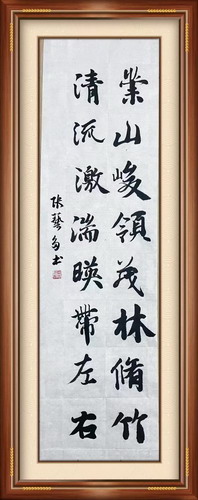 崇山峻領茂林脩竹
清流激湍暎帶左右
張藝多书